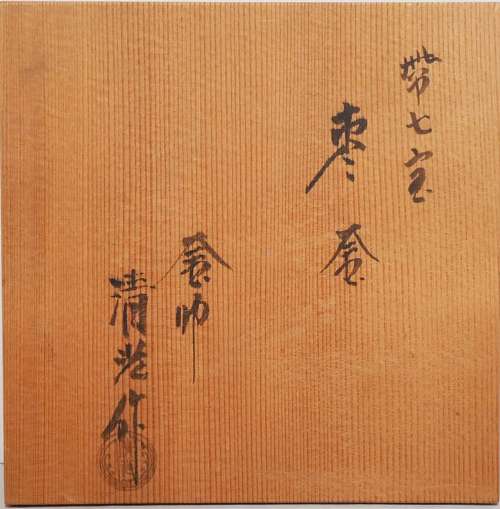 帯七宝
棗釜
釜師
清光作